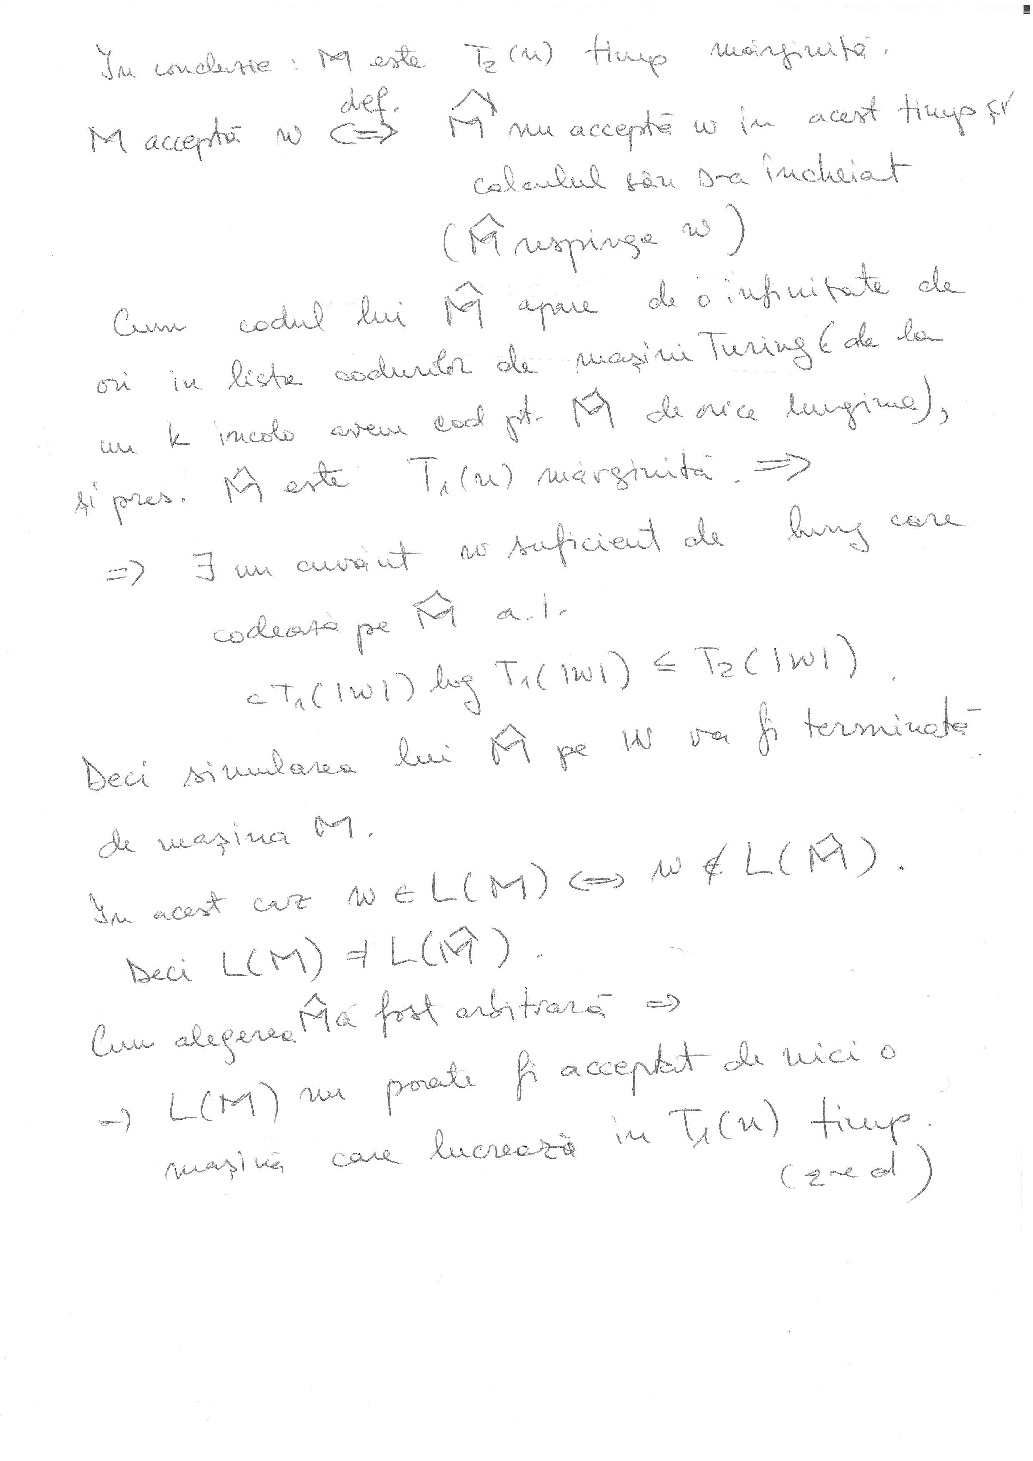 In concluzie : M este T₂(n) timp mărginită.
M acceptă w ⟺ def. M̂ nu acceptă w in acest timp și
calculul său s-a încheiat
(M̂ respinge w)
Cum codul lui M̂ apare de o infinitate de
ori in lista codurilor de mașini Turing (de la
un k incolo avem cod pt. M̂ de orice lungime),
și pres. M̂ este T₁(n) mărginită. ⟹
⟹ ∃ un cuvânt w suficient de lung care
codează pe M̂ a.î.
c T₁(|w|) log T₁(|w|) ≤ T₂(|w|).
Deci simularea lui M̂ pe w va fi terminată
de mașina M.
In acest caz w ∈ L(M) ⟺ w ∉ L(M̂).
Deci L(M) ≠ L(M̂).
Cum alegerea M̂ a fost arbitrară ⟹
→ L(M) nu poate fi acceptat de nici o
mașină care lucrează in T₁(n) timp.
(q.e.d)